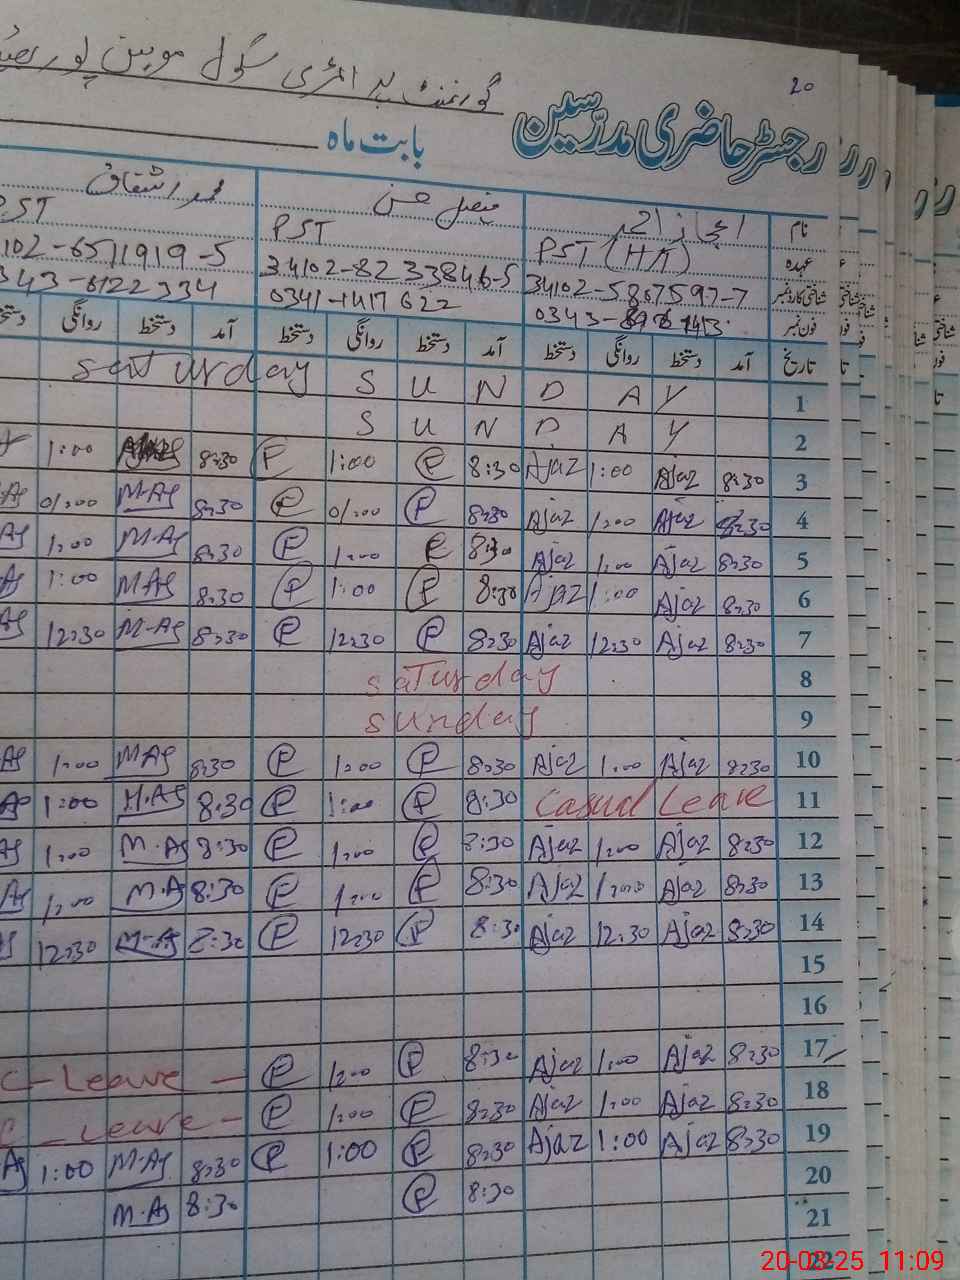 20
گورنمنٹ پرائمری سکول موہن پور
رجسٹر حاضری مدرسین بابت ماہ
نام اعجاز احمد فیصل حسن محمد اشفاق
عہدہ PST (HT) PST PST
شناختی کارڈ نمبر 34102-5867597-7 34102-8233846-5 102-6571919-5
فون نمبر 0341-1417622 343-6122334
تاریخ آمد دستخط روانگی دستخط آمد دستخط روانگی دستخط آمد دستخط روانگی
1 SUNDAY Saturday
2 SUNDAY
3 8:30 Ajaz 1:00 Ajaz 8:30 P 1:00 P 8:30 1:00
4 8:30 Ajaz 1:00 Ajaz 8:30 P 01:00 P 8:30 M.AS 01:00 AS
5 8:30 Ajaz 1:00 Ajaz 8:30 P 1:00 P 8:30 M.AS 1:00 AS
6 8:30 Ajaz 1:00 Ajaz 8:30 P 1:00 P 8:30 MAS 1:00 AS
7 8:30 Ajaz 12:30 Ajaz 8:30 P 12:30 P 8:30 M-AS 12:30 AS
8 Saturday
9 Sunday
10 8:30 Ajaz 1:00 Ajaz 8:30 P 1:00 P 8:30 MAS 1:00 AS
11 Casual Leave 8:30 P 1:00 P 8:30 M.AS 1:00 AS
12 8:30 Ajaz 1:00 Ajaz 8:30 P 1:00 P 8:30 M.AS 1:00 AS
13 8:30 Ajaz 1:00 Ajaz 8:30 P 1:00 P 8:30 M.AS 1:00 AS
14 8:30 Ajaz 12:30 Ajaz 8:30 P 12:30 P 8:30 M-AS 12:30
15
16
17 8:30 Ajaz 1:00 Ajaz 8:30 P 1:00 P C-Leave-
18 8:30 Ajaz 1:00 Ajaz 8:30 P 1:00 P C-Leave-
19 8:30 Ajaz 1:00 Ajaz 8:30 P 1:00 P 8:30 M-AS 1:00 AS
20 8:30 P 8:30 M.AS
21
22
20-03-25 11:09